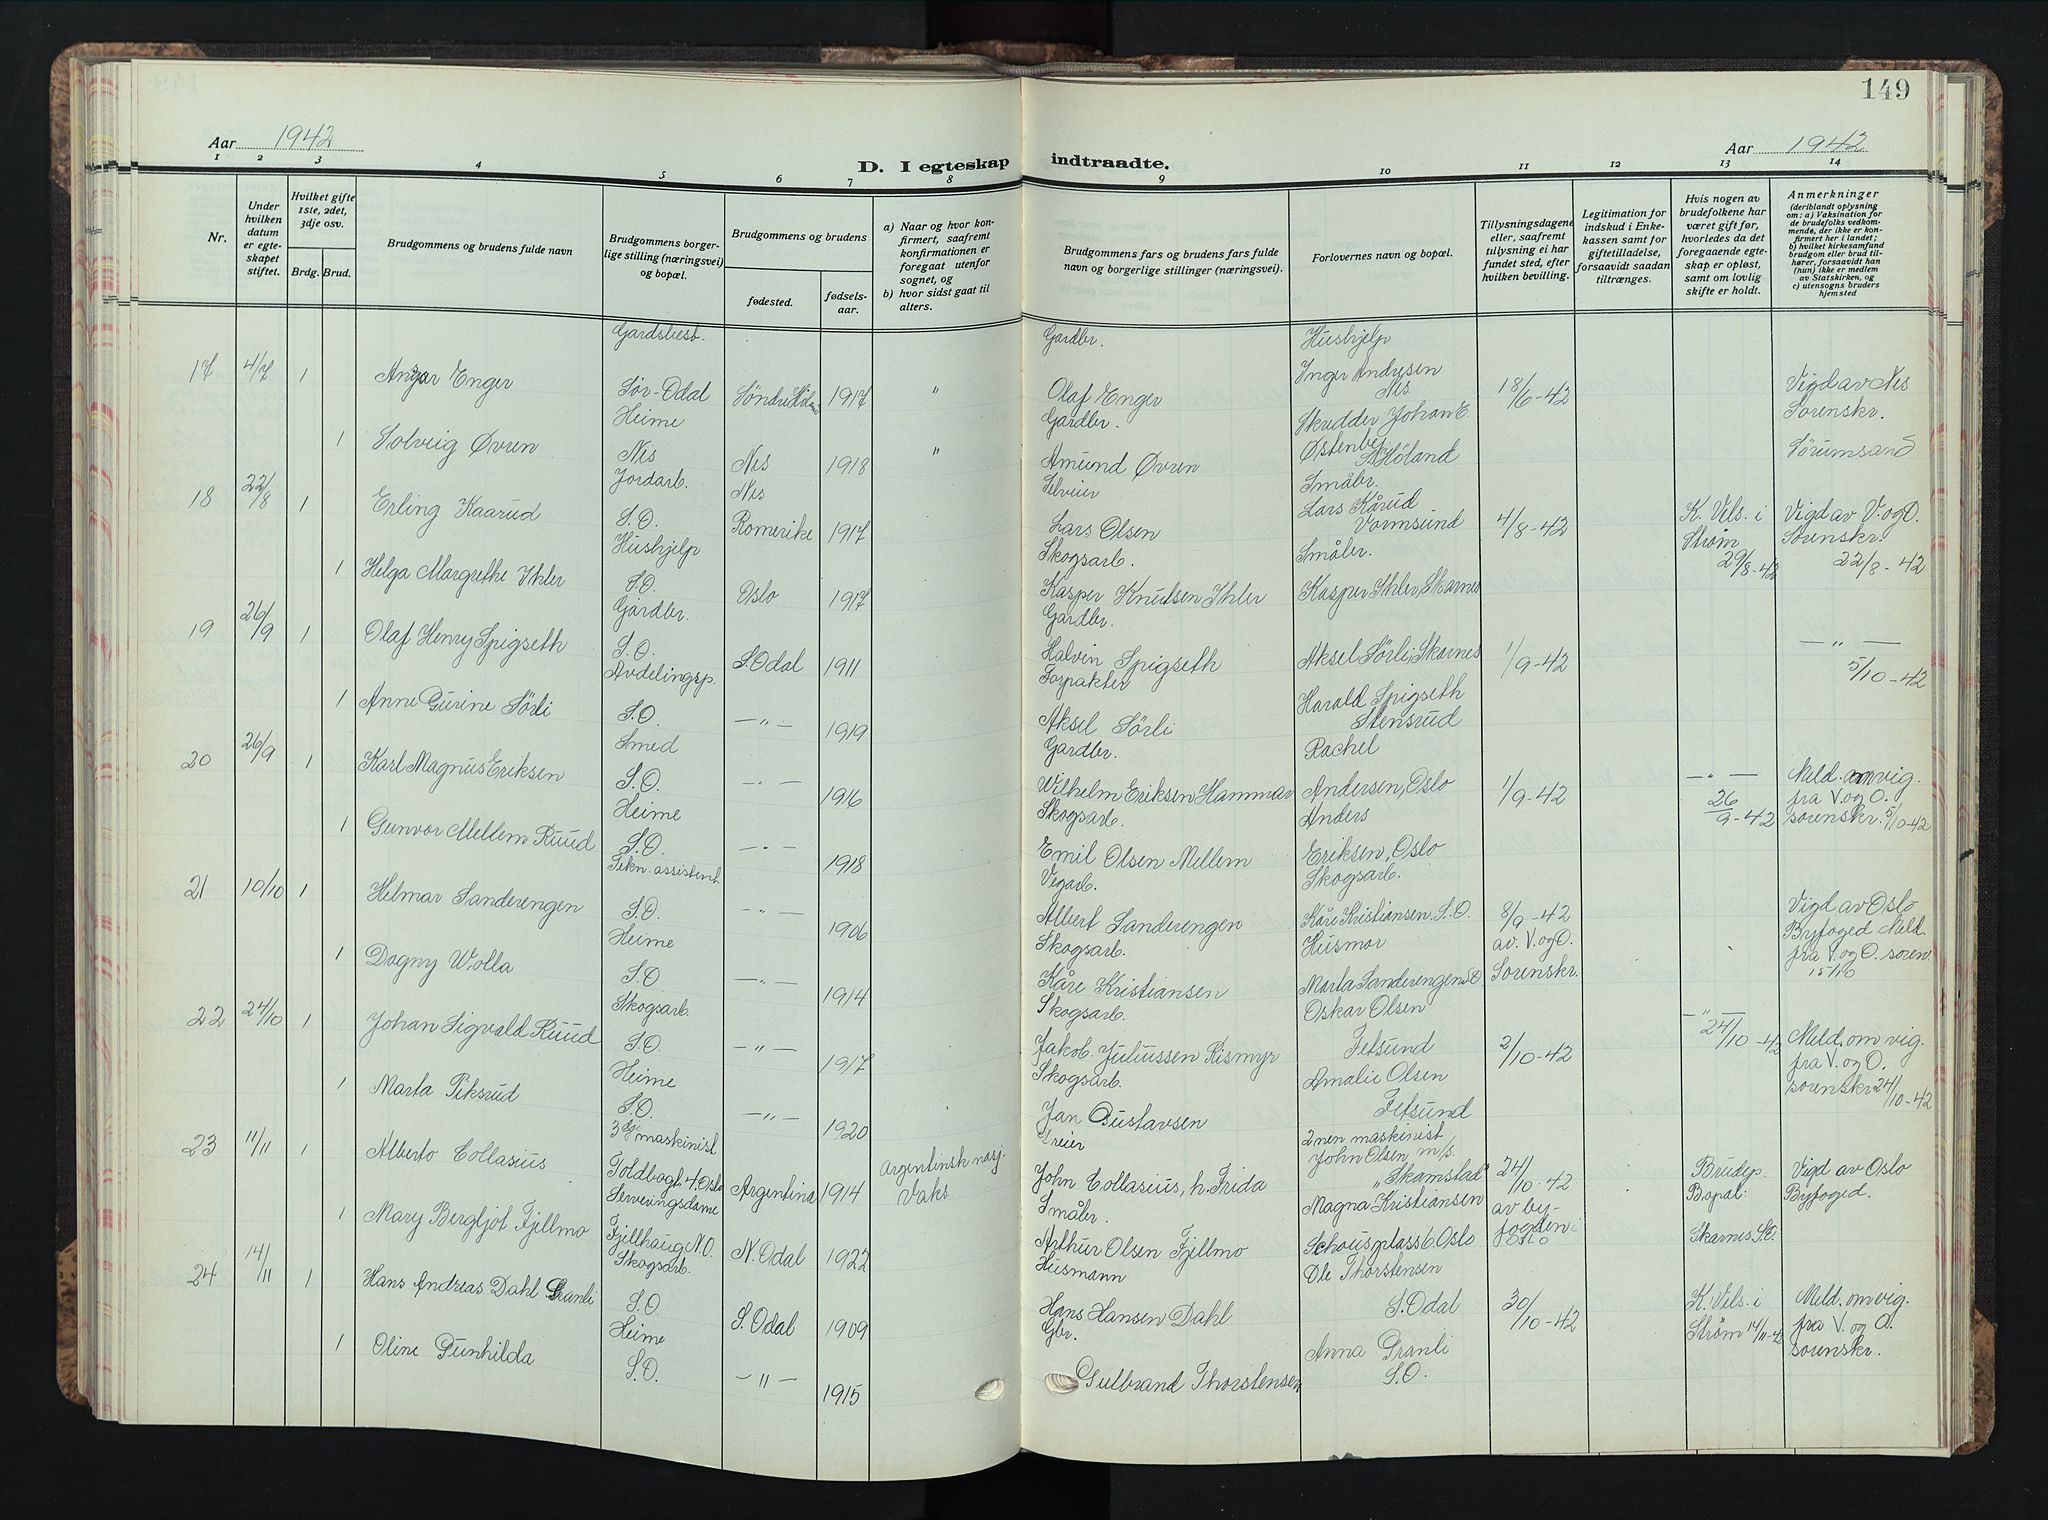 149
Aar 1942
Aar 1942
D. I egteskap indtraadte.
1 2 3 4 5 6 7 8 9 10 11 12 13 14
Nr.
Under hvilken datum er egteskapet stiftet.
Hvilket gifte 1ste, 2det, 3dje osv.
Brdg. Brud.
Brudgommens og brudens fulde navn
Brudgommens borgerlige stilling (næringsvei) og bopæl.
Brudgommens og brudens
fødested.
fødselsaar.
a) Naar og hvor konfirmert, saafremt konfirmationen er foregaat utenfor sognet, og
b) hvor sidst gaat til alters.
Brudgommens fars og brudens fars fulde navn og borgerlige stillinger (næringsvei).
Forlovernes navn og bopæl.
Tillysningsdagene eller, saafremt tillysning ei har fundet sted, efter hvilken bevilling.
Legitimation for indskud i Enkekassen samt for giftetilladelse, forsaavidt saadan tiltrænges.
Hvis nogen av brudefolkene har været gift før, hvorledes da det foregaaende egteskap er opløst, samt om lovlig skifte er holdt.
Anmerkninger (deriblandt oplysning om: a) Vaksination for de brudefolks vedkommende, der ikke er konfirmert her i landet; b) hvilket kirkesamfund brudgom eller brud tilhører, forsaavidt han (hun) ikke er medlem av Statskirken, og c) utensogns bruders hjemsted
17 4/7 1 Ansgar Enger Gardsbest. Sør-Odal Søndre Høland 1917 " Gardbr. Olaf Enger Hushjelp Inger Andresen Nes 18/6-42 Vigd av Nes Sorenskr.
1 Solveig Øvren Heime Nes Nes 1918 " Gardbr. Amund Øvren Skredder Johan E. Østenbej S. Høland Sørumsand
18 22/8 1 Erling Kaarud Jordarb. S.O. Nes Romerike 1917 Selveier Lars Olsen Småbr. Lars Kårud Vormsund 4/8-42 K. Vels. i Strøm 29/8-42 Vigd av V. og O. Sorenskr. 22/8-42
1 Helga Margrethe Ihler Hushjelp S.O. Oslo 1917 Skogsarb. Kasper Knutsen Ihler Småbr. Kasper Ihler, Skarnes
19 26/9 1 Olaf Henry Spigseth Gardbr. S.O. S. Odal 1911 Gardbr. Halvin Spigseth Aksel Sørli, Skarnes 1/9-42 — " — 5/10-42
1 Anne Gurine Sørli Avdelingsp. S.O. — " — 1919 Forpakter Aksel Sørli Harald Spigseth Stensrud
20 26/9 1 Karl Magnus Eriksen Smed S.O. — " — 1916 Gardbr. Wilhelm Eriksen Hammar Rachel Andersen, Oslo 1/9-42 — " — 26/9-42 Meld. om vig. fra V. og O. sorenskr. 5/10-42
1 Gunvor Mellem Ruud Heime S.O. — " — 1918 Skogsarb. Emil Olsen Mellem Anders Eriksen, Oslo
21 10/10 1 Helmar Sanderengen Tekn. assistent S.O. — " — 1906 Vegarb. Albert Sanderengen Skogsarb. Kåre Kristiansen S.O. 8/9-42 av. V. og O. Sorenskr. Vigd av Oslo Byfoged Meld. fra V. og O. soren. 15/10
1 Dagny Wolla Heime S.O — " — 1914 Skogsarb. Kåre Kristiansen Husmor Marta Sanderengen S.O
22 24/10 1 Johan Sigvald Ruud Skogsarb. S.O. — " — 1917 Skogsarb. Jakob Juliussen Rismyr Oskar Olsen Fetsund 2/10-42 — " — 24/10-42 Meld. om vig. fra V. og O. sorenskr 24/10-42
1 Marta Piksrud Heime S.O. — " — 1920 Skogsarb. Jan Gustavsen Amalie Olsen Fetsund
23 11/11 1 Alberto Collasius 3dje maskinist Toldbogt 4. Oslo Argentina 1914 Argentinsk nasj. Vaks Dreier John Collasius, h. Frida 2nen maskinist John Olsen, m/s. "Skamstad" 24/10-42 av byfogden i Oslo Brudep. Bopæl: Skarnes S.O. Vigd av Oslo Byfoged.
1 Mary Bergljot Fjellmo Serveringsdame Fjellhaug N.O. N. Odal 1922 Småbr. Arthur Olsen Fjellmo Magna Kristiansen Schousplass 6 Oslo
24 14/11 1 Hans Andreas Dahl Granli Skogsarb. S.O. S. Odal 1909 Husmann Hans Hansen Dahl Ole Thorstensen S. Odal 30/10-42 K. Vels. i Strøm 14/11-42 Meld. om vig. fra V. og O. sorenskr.
1 Oline Gunhilda Heime S.O. — " — 1915 Gbr. Gulbrand Thorstensen Anna Granli S.O.